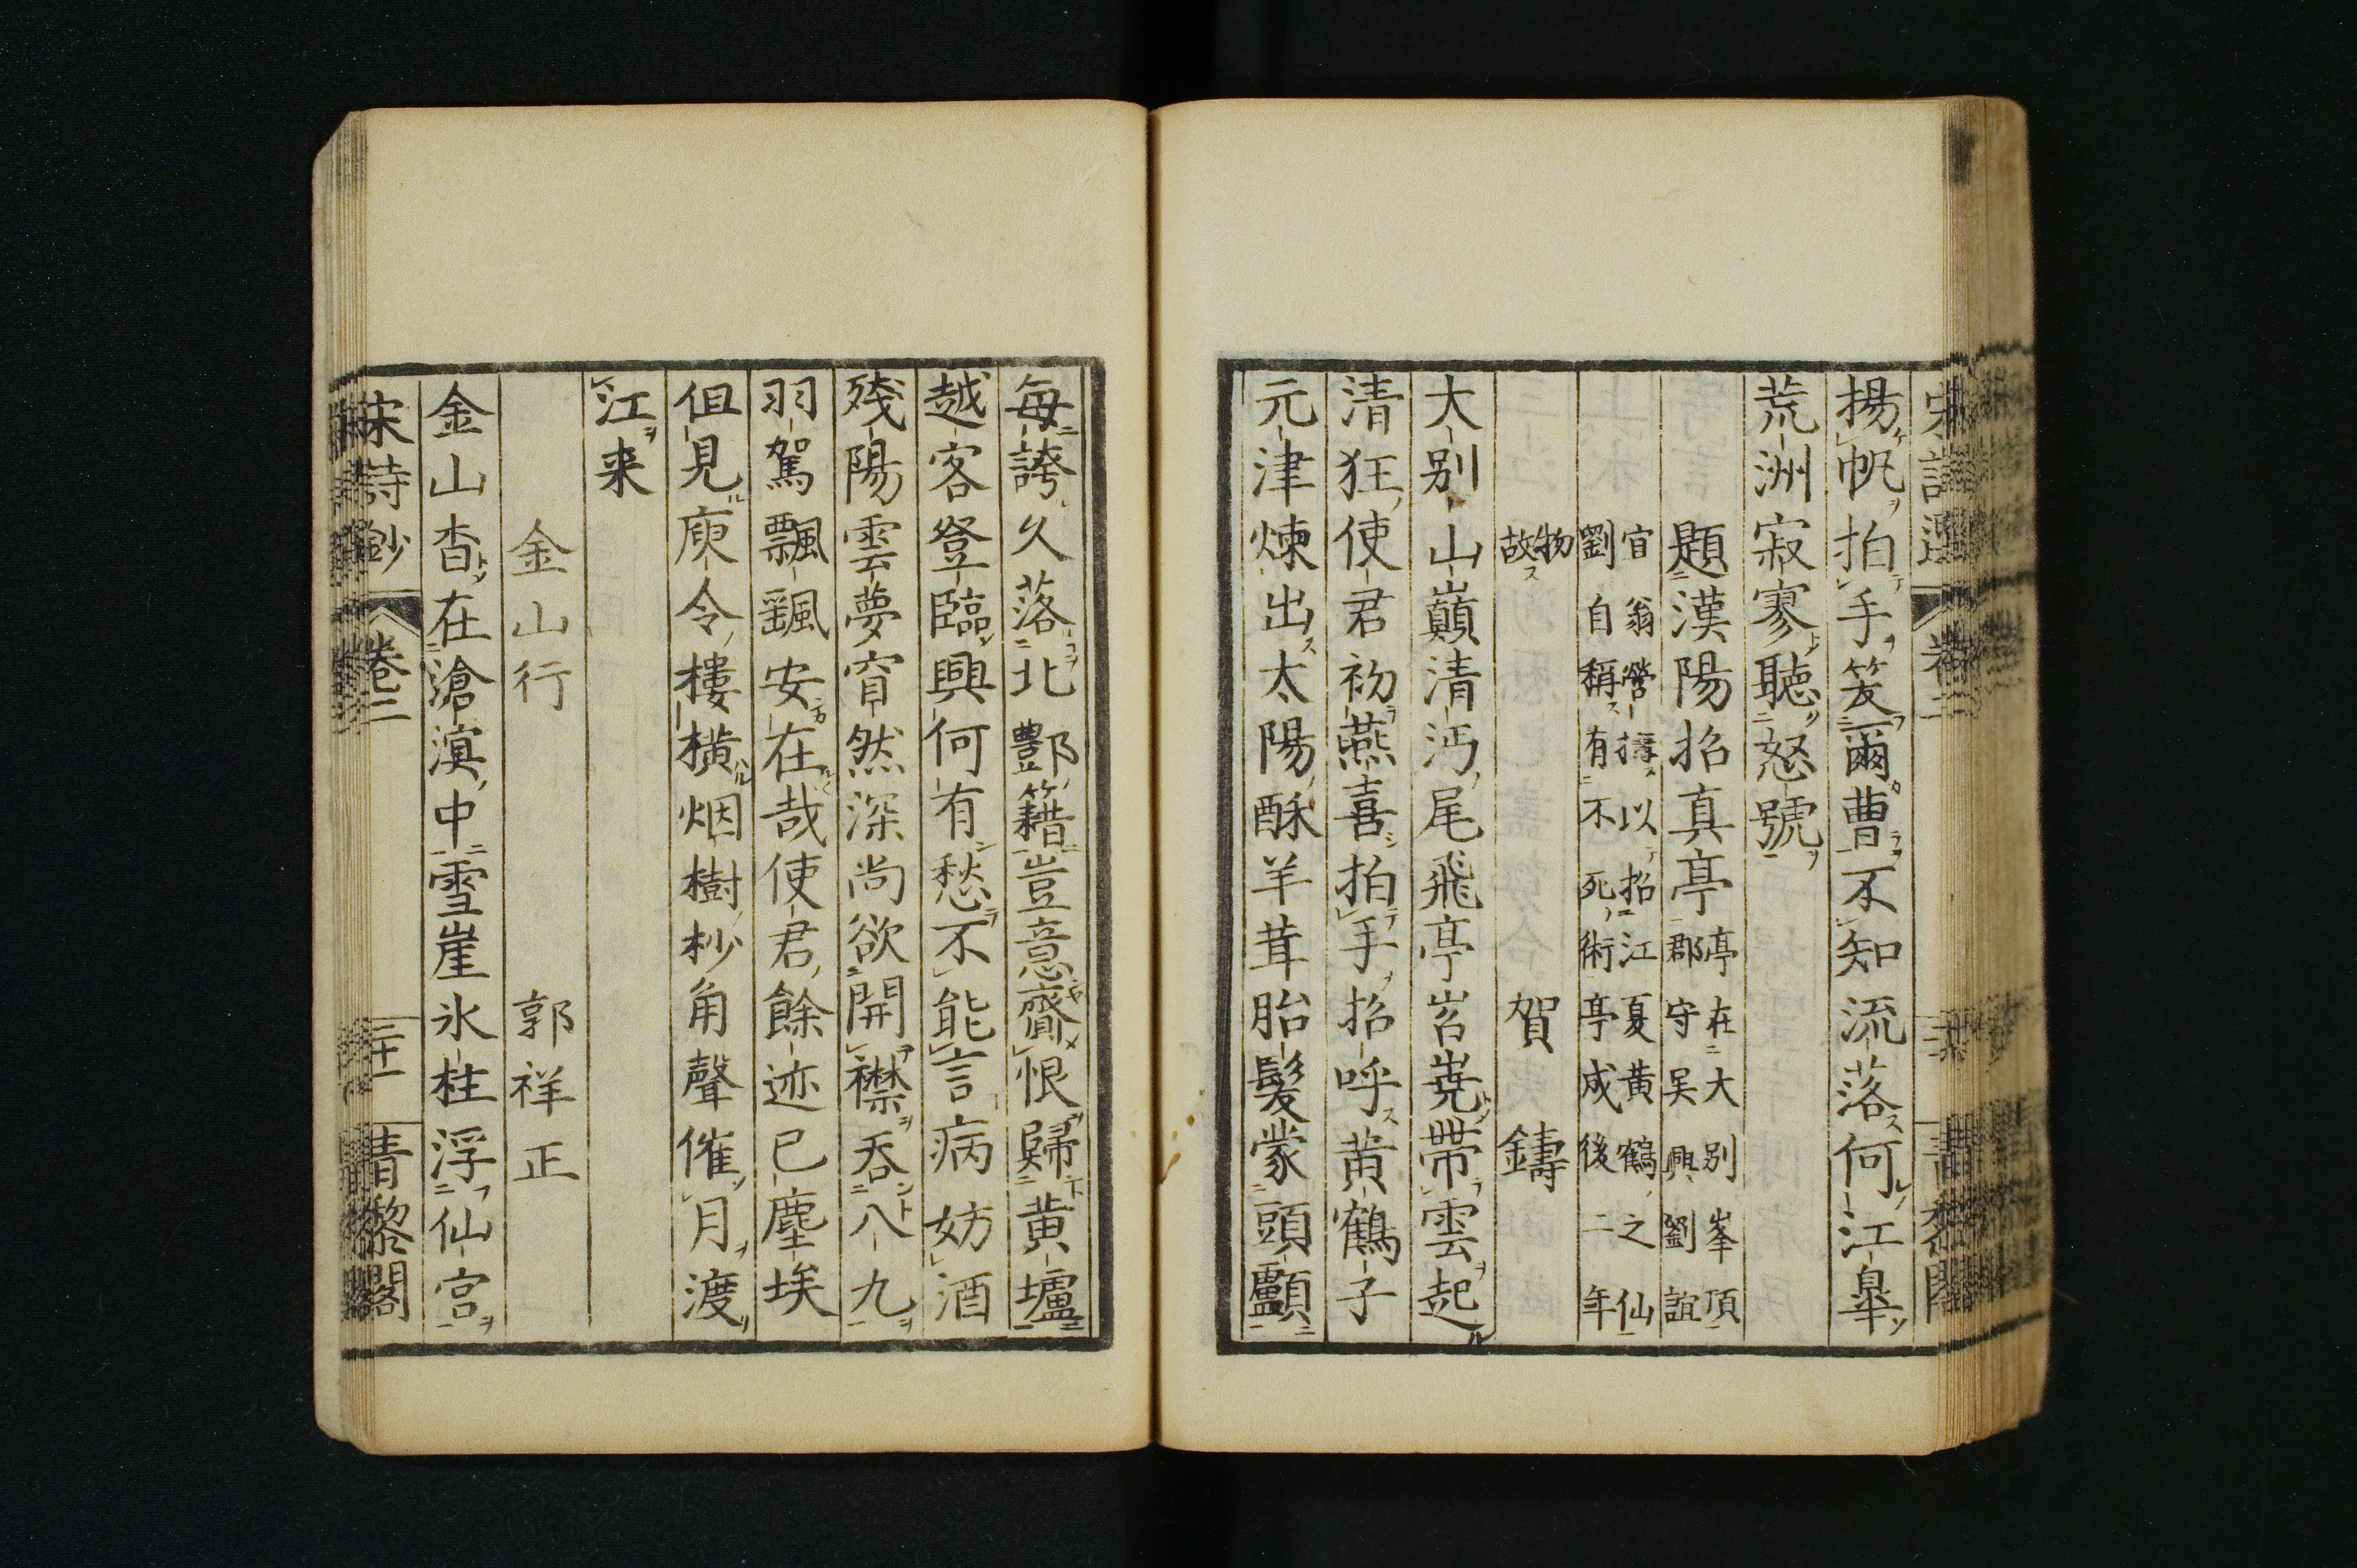 揚帆拍手笑爾曹不知流落何江皐
荒洲寂寥聽怒號
題漢陽招真亭
亭在大別峯頂
郡守吴興劉誼
宜翁嘗擣以招江夏黄鶴之仙
劉自稱有不死術亭成後二年
物
故
賀鑄
大别山巓清沔尾飛亭岧嶤帶雲起
清狂使君初燕喜拍手招呼黄鶴子
元津煉出太陽酥羊茸胎髮蒙頭顱
每誇久落北酆籍豈意齎恨歸黄壚
越客登臨興何有愁不能言病妨酒
殘陽雲夢窅然深尚欲開襟呑八九
羽駕飄颻安在哉使君餘迹已塵埃
但見庾令樓横烟樹杪角聲催月渡
江来
金山行
郭祥正
金山杳在滄溟中雪崖氷柱浮仙宫
宋詩鈔
卷二
二十一
青黎閣